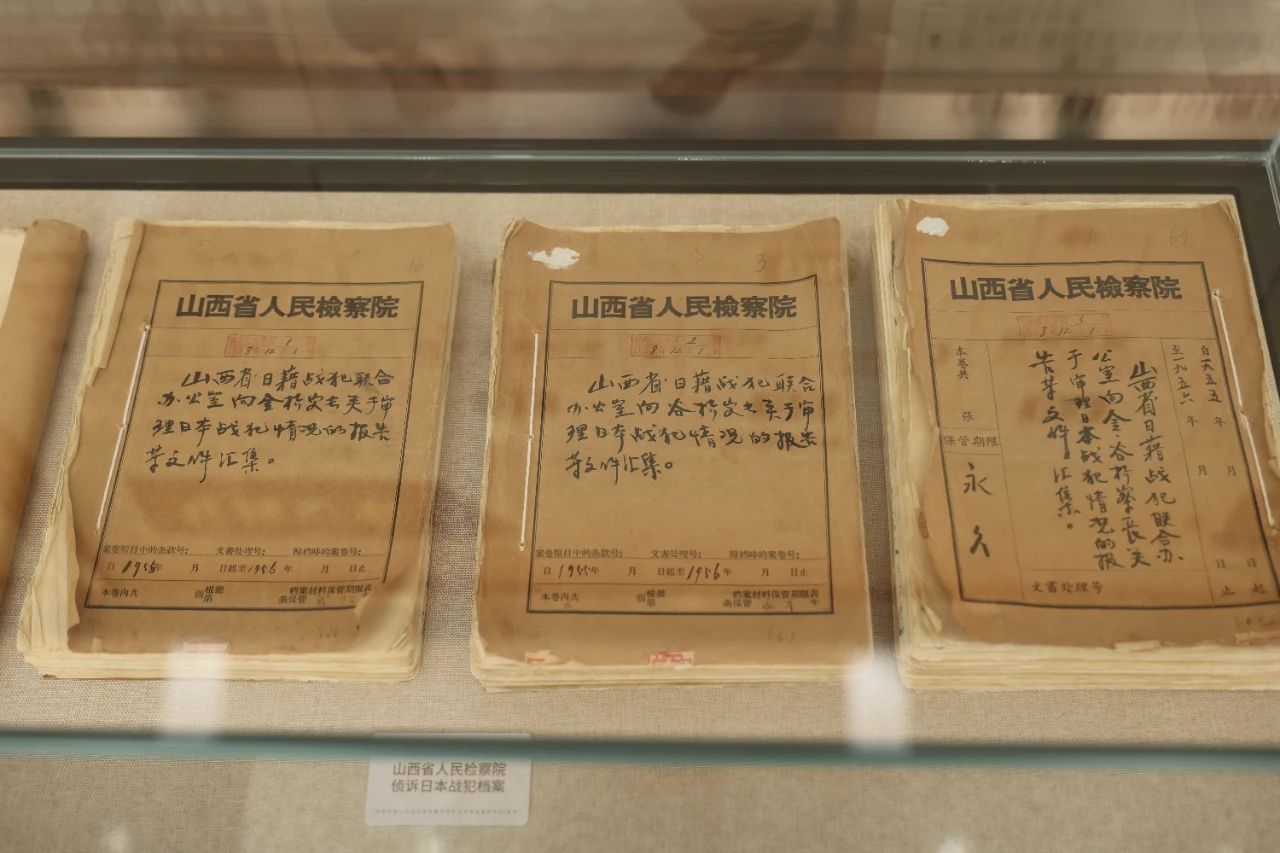 山西省人民檢察院
1
8 12 1
山西省日藉战犯联合
办公室向金检察长关于审
理日本战犯情况的报告
等文件汇集。
案卷類目中的条款号： 文書处理号： 歸档時的案卷号：
自1955年 月 日起至1956年 月 日止
本卷内共 張 根据 档案材料保管期限表
第 条保管
山西省人民檢察院
2
8 12 1
3
山西省日藉战犯联合
办公室向谷检察长关于审
理日本战犯情况的报告
等文件汇集。
案卷類目中的条款号： 文書处理号： 歸档時的案卷号：
自1955年 月 日起至1956年 月 日止
本卷内共 張 根据 档案材料保管期限表
第 条保管 年
山西省人民檢察院
3
8 12 1
自一九五五年 月 日起
至一九五六年 月 日止
山西省日藉战犯联合办
公室向金、谷检察長关
于审理日本战犯情况的报
告等文件汇集。
本卷共 張
保管期限
永久
文書处理号
山西省人民检察院
侦诉日本战犯档案